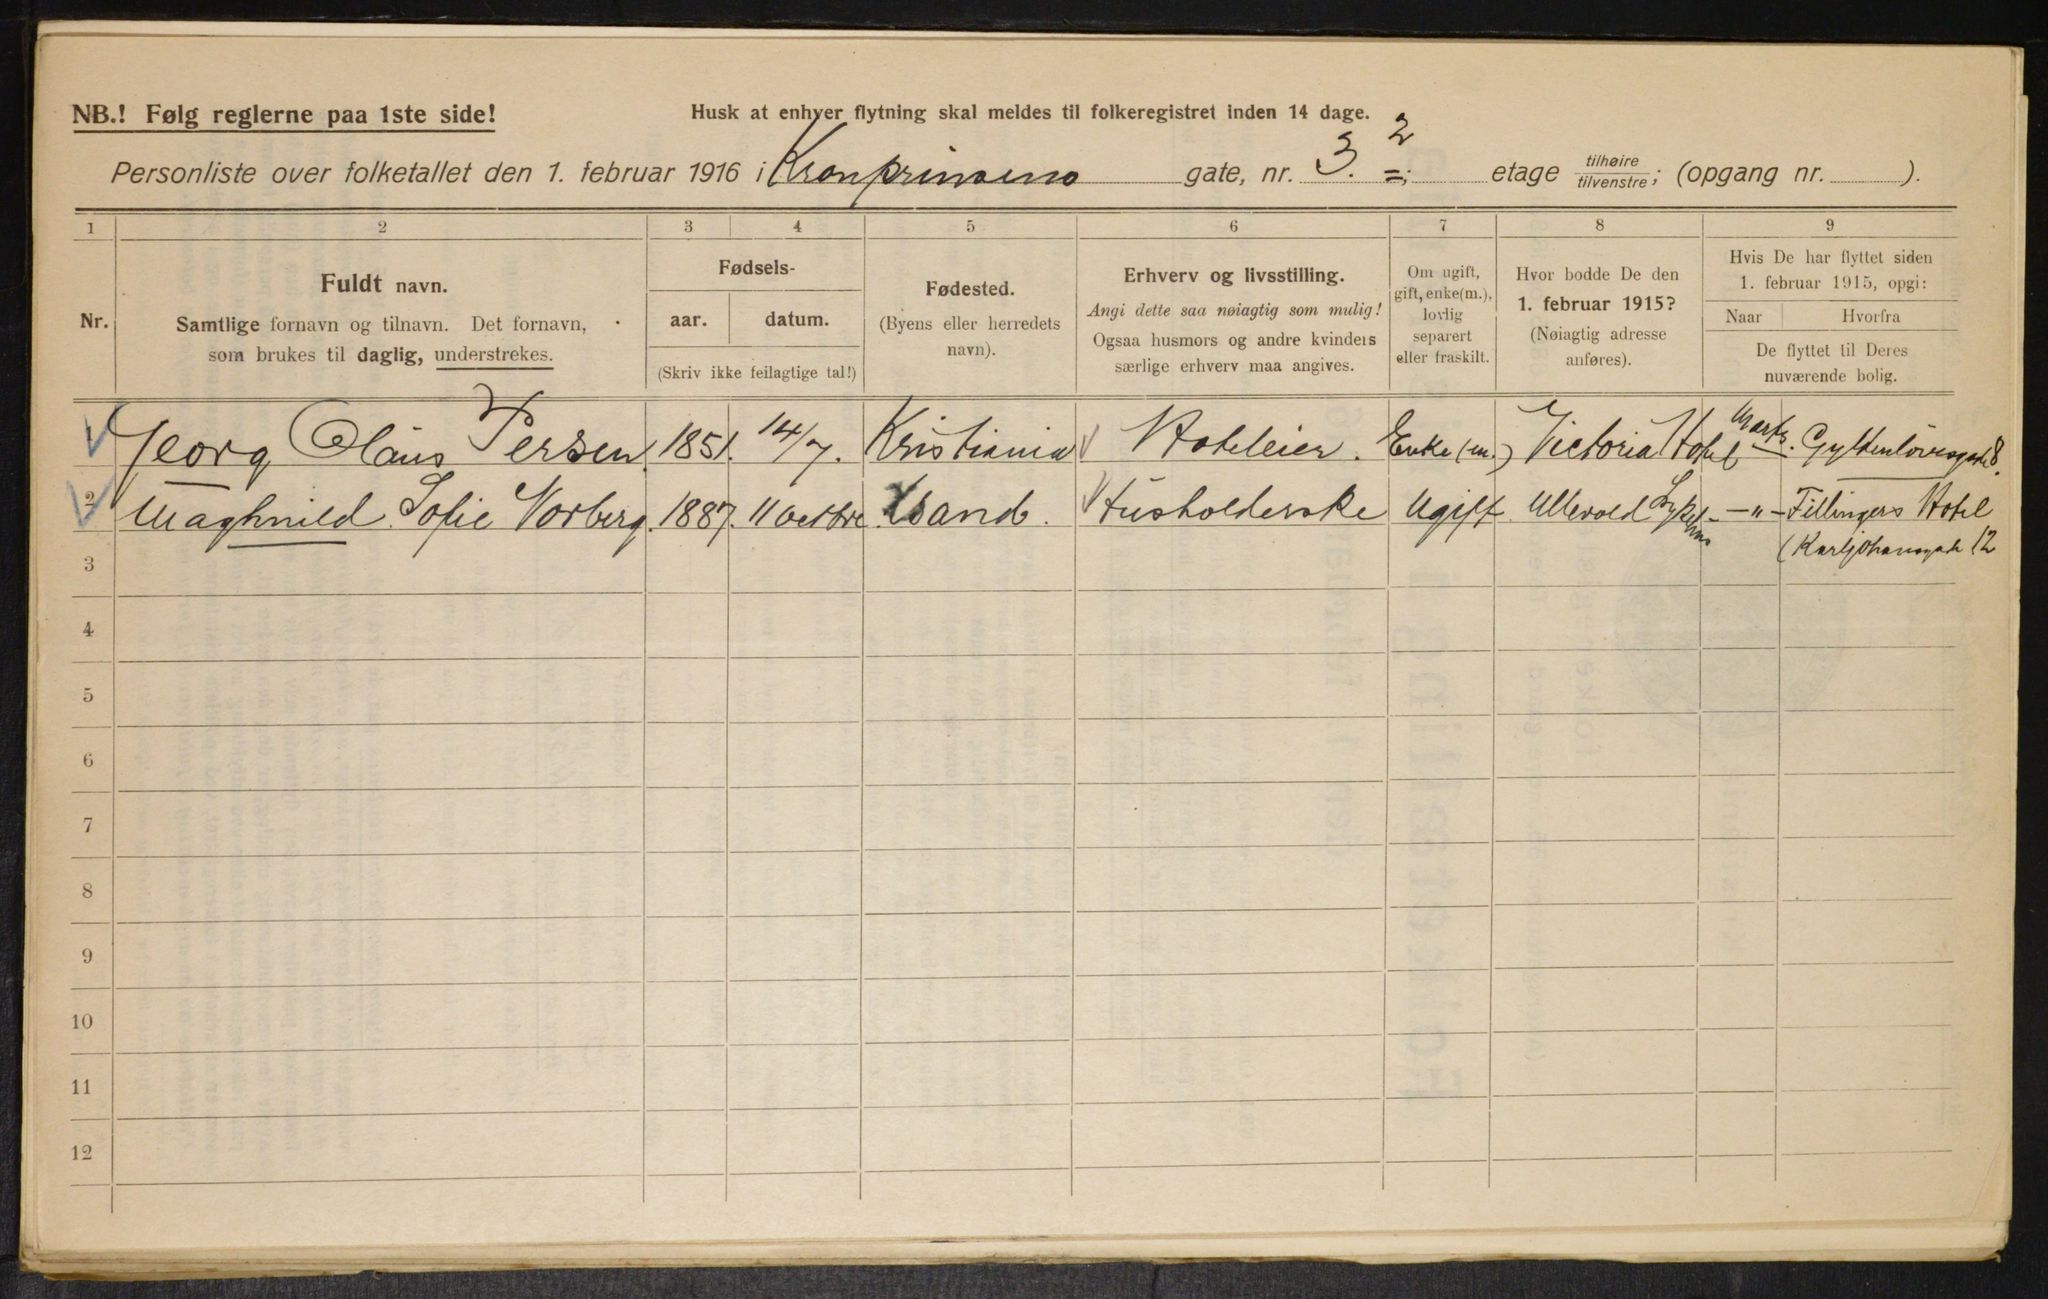 NB.! Følg reglerne paa 1ste side! Husk at enhver flytning skal meldes til folkeregistret inden 14 dage.
Personliste over folketallet den 1. februar 1916 i Kronprinsens gate, nr. 3. 2 etage tilhøire/tilvenstre; (opgang nr. ).
1 2 3 4 5 6 7 8 9
Nr.
Fuldt navn.
Samtlige fornavn og tilnavn. Det fornavn,
som brukes til daglig, understrekes.
Fødsels-
aar. datum.
(Skriv ikke feilagtige tal!)
Fødested.
(Byens eller herredets
navn).
Erhverv og livsstilling.
Angi dette saa nøiagtig som mulig!
Ogsaa husmors og andre kvinders
særlige erhverv maa angives.
Om ugift,
gift, enke(m.),
lovlig
separert
eller fraskilt.
Hvor bodde De den
1. februar 1915?
(Nøiagtig adresse
anføres).
Hvis De har flyttet siden
1. februar 1915, opgi:
Naar Hvorfra
De flyttet til Deres
nuværende bolig.
Georg Olaus Persen. 1851. 14/7. Kristiania Hoteleier. Enke(m.) Victoria Hotel Marts. Gyldenløvesgade 8.
2 Maghnild Sofie Vorberg. 1887. 11 octbr. Sand. Husholderske Ugift Ullevold Sykehus - " - Fillingers Hotel
3 (Karljohansgade 12
4
5
6
7
8
9
10
11
12